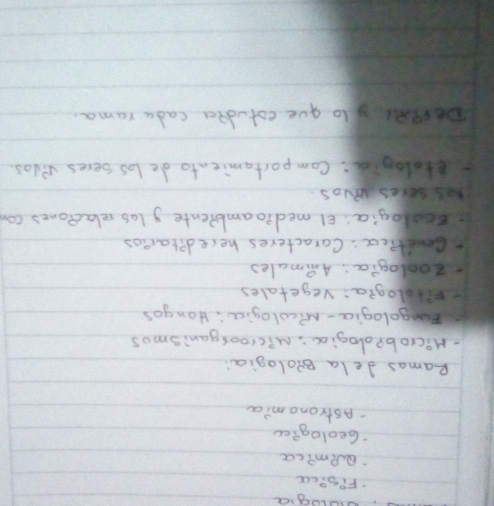 Biologia
- Física
- Química
- Geologia
- Astronomia
Ramas de la Biologia:
- Microbiologia: Microorganismos
- Fungologia - Micologia: Hongos
- Fitologia: Vegetales
- Zoologia: Animales
- Genética: Caracteres hereditarios
- Ecologia: El medioambiente y las relaciones con
los seres vivos.
- Etologia: Comportamiento de los seres vivos
y lo que estudia cada rama.